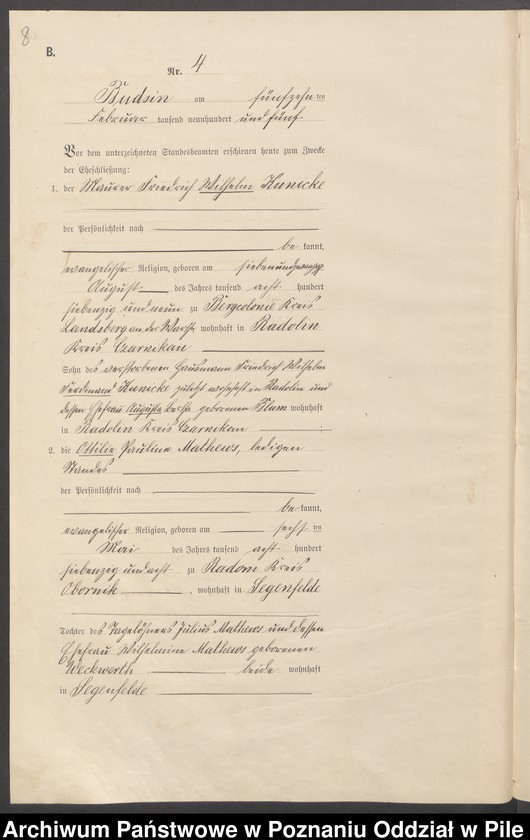 8
B.
Nr. 4
Budsin am fünfzehn ten
Februar tausend neunhundert und fünf
Vor dem unterzeichneten Standesbeamten erschienen heute zum Zwecke
der Eheschließung:
1. der Maurer Friedrich Wilhelm Hunicke
der Persönlichkeit nach
be kannt,
evangelischer Religion, geboren am siebenundzwanzig
August des Jahres tausend acht hundert
siebenzig und neun zu Bergcolonie Kreis
Landsberg an der Warthe wohnhaft in Radolin
Kreis Czarnikau
Sohn des verstorbenen Friedrich Wilhelm
Ferdinand Hunicke zuletzt wohnhaft in Radolin und
dessen Ehefrau Auguste geborenen Blum wohnhaft
in Radolin Kreis Czarnikau
2. die Ottilie Pauline Mathews, ledigen
Standes
der Persönlichkeit nach
be kannt,
evangelischer Religion, geboren am sechs ten
Mai des Jahres tausend acht hundert
siebenzig und acht zu Radom Kreis
Obornik, wohnhaft in Segenfelde
Tochter des Tagelöhners Julius Mathews und dessen
Ehefrau Wilhelmine Mathews geborenen
Weckwerth beide wohnhaft
in Segenfelde
Archiwum Państwowe w Poznaniu Oddział w Pile